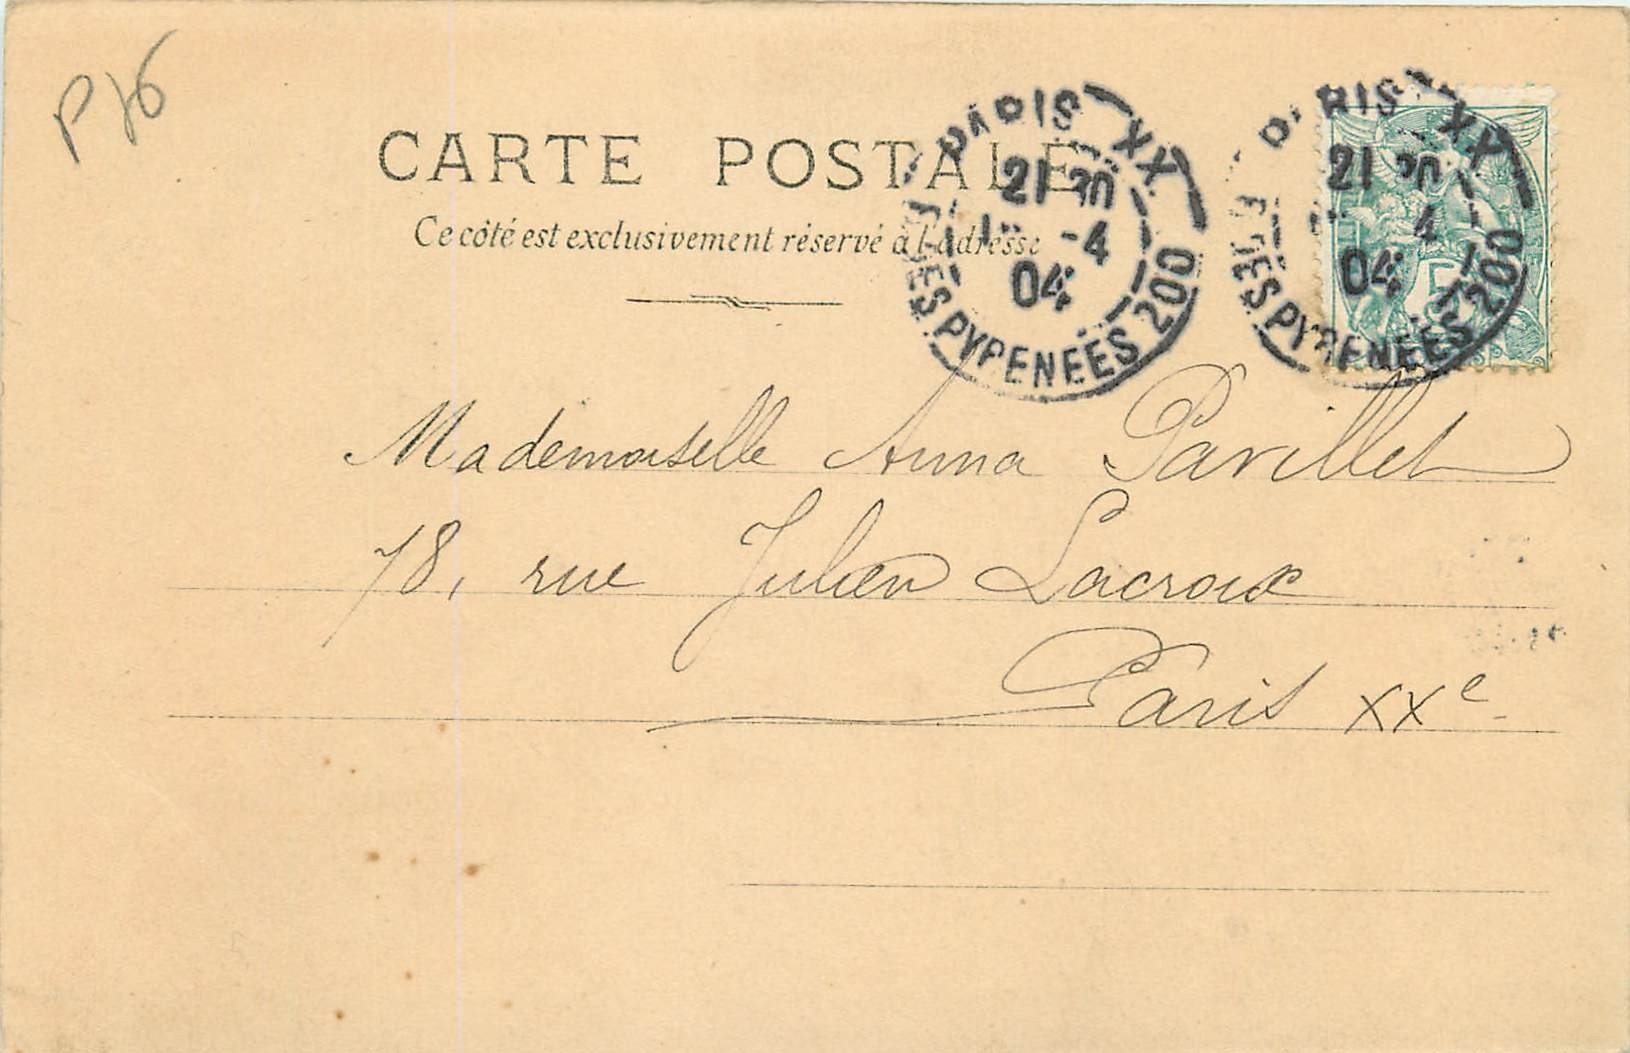 P76
CARTE POSTALE
Ce côté est exclusivement réservé à l'adresse
PARIS XX
21 30
-4
04
PYRENEES 200
PARIS XX
21 30
4
04
PYRENEES 200
5
Mademoiselle Anna Pavillet
78, rue Julien Lacroix
Paris XXe